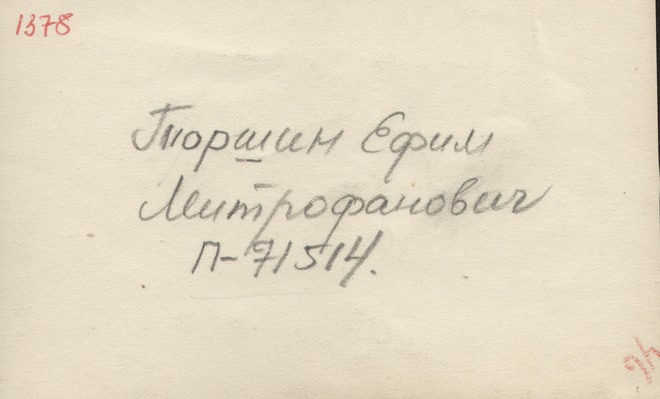 1378
Тюршин Ефим
Митрофанович
П-71514.